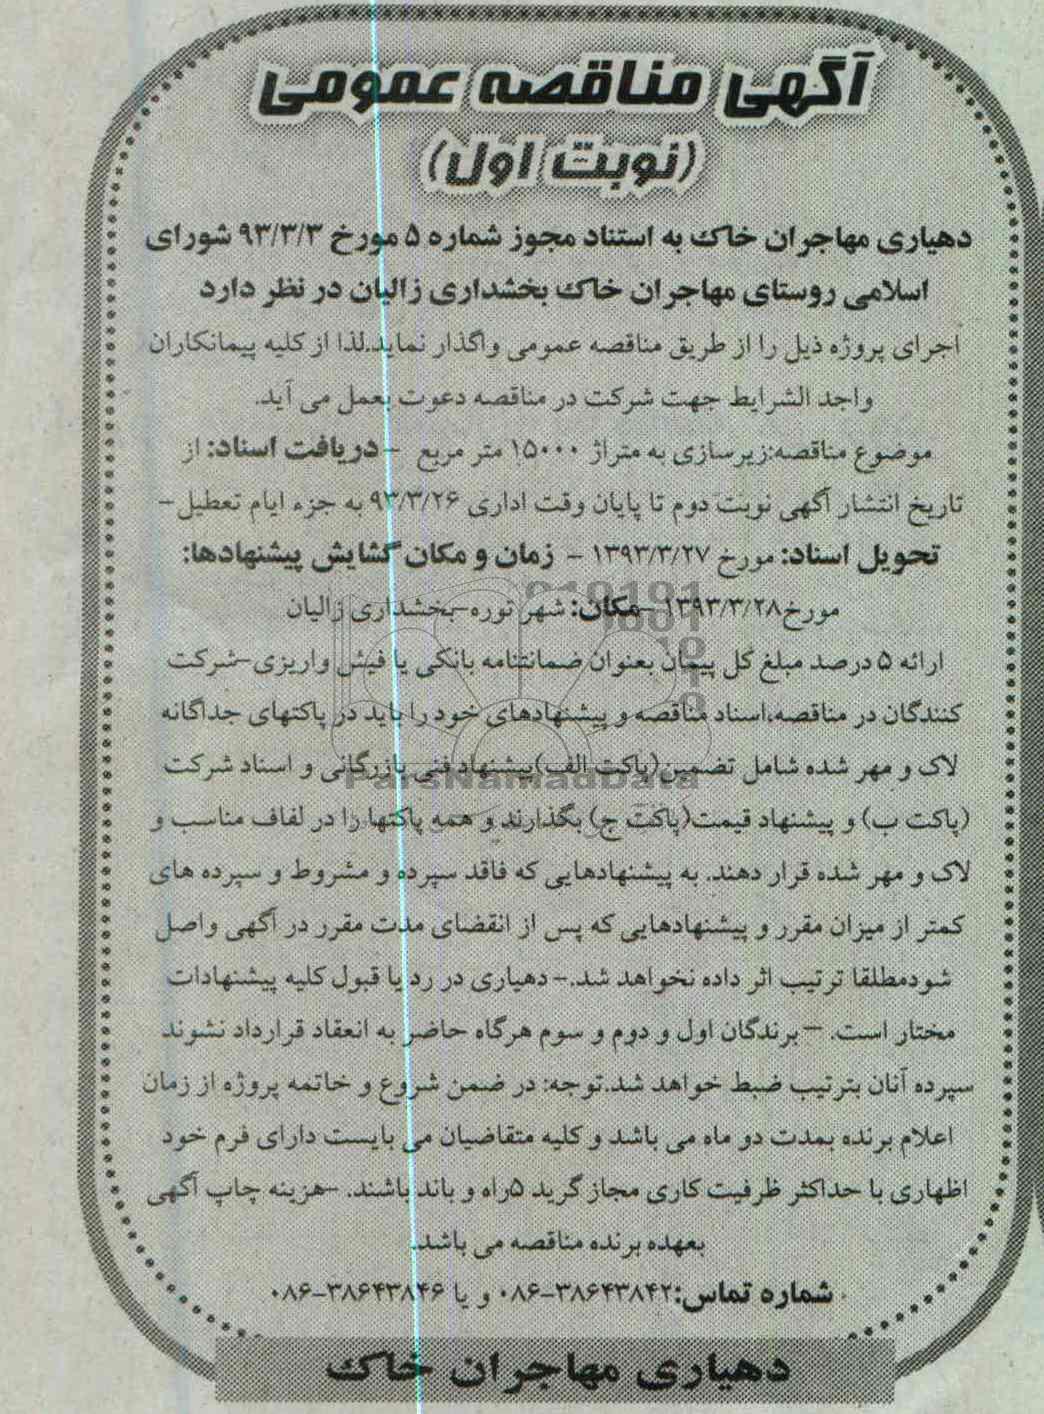 آگهی مناقصه عمومی
(نوبت اول)
دهیاری مهاجران خاک به استناد مجوز شماره ۵ مورخ ۹۳/۳/۳ شورای
اسلامی روستای مهاجران خاک بخشداری زالیان در نظر دارد
اجرای پروژه ذیل را از طریق مناقصه عمومی واگذار نماید.لذا از کلیه پیمانکاران
واجد الشرایط جهت شرکت در مناقصه دعوت بعمل می آید.
موضوع مناقصه:زیرسازی به متراژ ۱۵۰۰۰ متر مربع - دریافت اسناد: از
تاریخ انتشار آگهی نوبت دوم تا پایان وقت اداری ۹۳/۳/۲۶ به جزء ایام تعطیل-
تحویل اسناد: مورخ ۱۳۹۳/۳/۲۷ - زمان و مکان گشایش پیشنهادها:
مورخ۱۳۹۳/۳/۲۸ -مکان: شهر توره-بخشداری زالیان
ارائه ۵ درصد مبلغ کل پیمان بعنوان ضمانتنامه بانکی یا فیش واریزی-شرکت
کنندگان در مناقصه،اسناد مناقصه و پیشنهادهای خود را باید در پاکتهای جداگانه
لاک و مهر شده شامل تضمین(پاکت الف)پیشنهاد فنی بازرگانی و اسناد شرکت
ParsNamadData
(پاکت ب) و پیشنهاد قیمت(پاکت ج) بگذارند و همه پاکتها را در لفاف مناسب و
لاک و مهر شده قرار دهند. به پیشنهادهایی که فاقد سپرده و مشروط و سپرده های
کمتر از میزان مقرر و پیشنهادهایی که پس از انقضای مدت مقرر در آگهی واصل
شودمطلقا ترتیب اثر داده نخواهد شد.- دهیاری در رد یا قبول کلیه پیشنهادات
مختار است. - برندگان اول و دوم و سوم هرگاه حاضر به انعقاد قرارداد نشوند
سپرده آنان بترتیب ضبط خواهد شد.توجه: در ضمن شروع و خاتمه پروژه از زمان
اعلام برنده بمدت دو ماه می باشد و کلیه متقاضیان می بایست دارای فرم خود
اظهاری با حداکثر ظرفیت کاری مجاز گرید ۵راه و باند باشند. -هزینه چاپ آگهی
بعهده برنده مناقصه می باشد.
شماره تماس:۳۸۶۴۳۸۴۲-۰۸۶ و یا ۳۸۶۴۳۸۴۶-۰۸۶
دهیاری مهاجران خاک